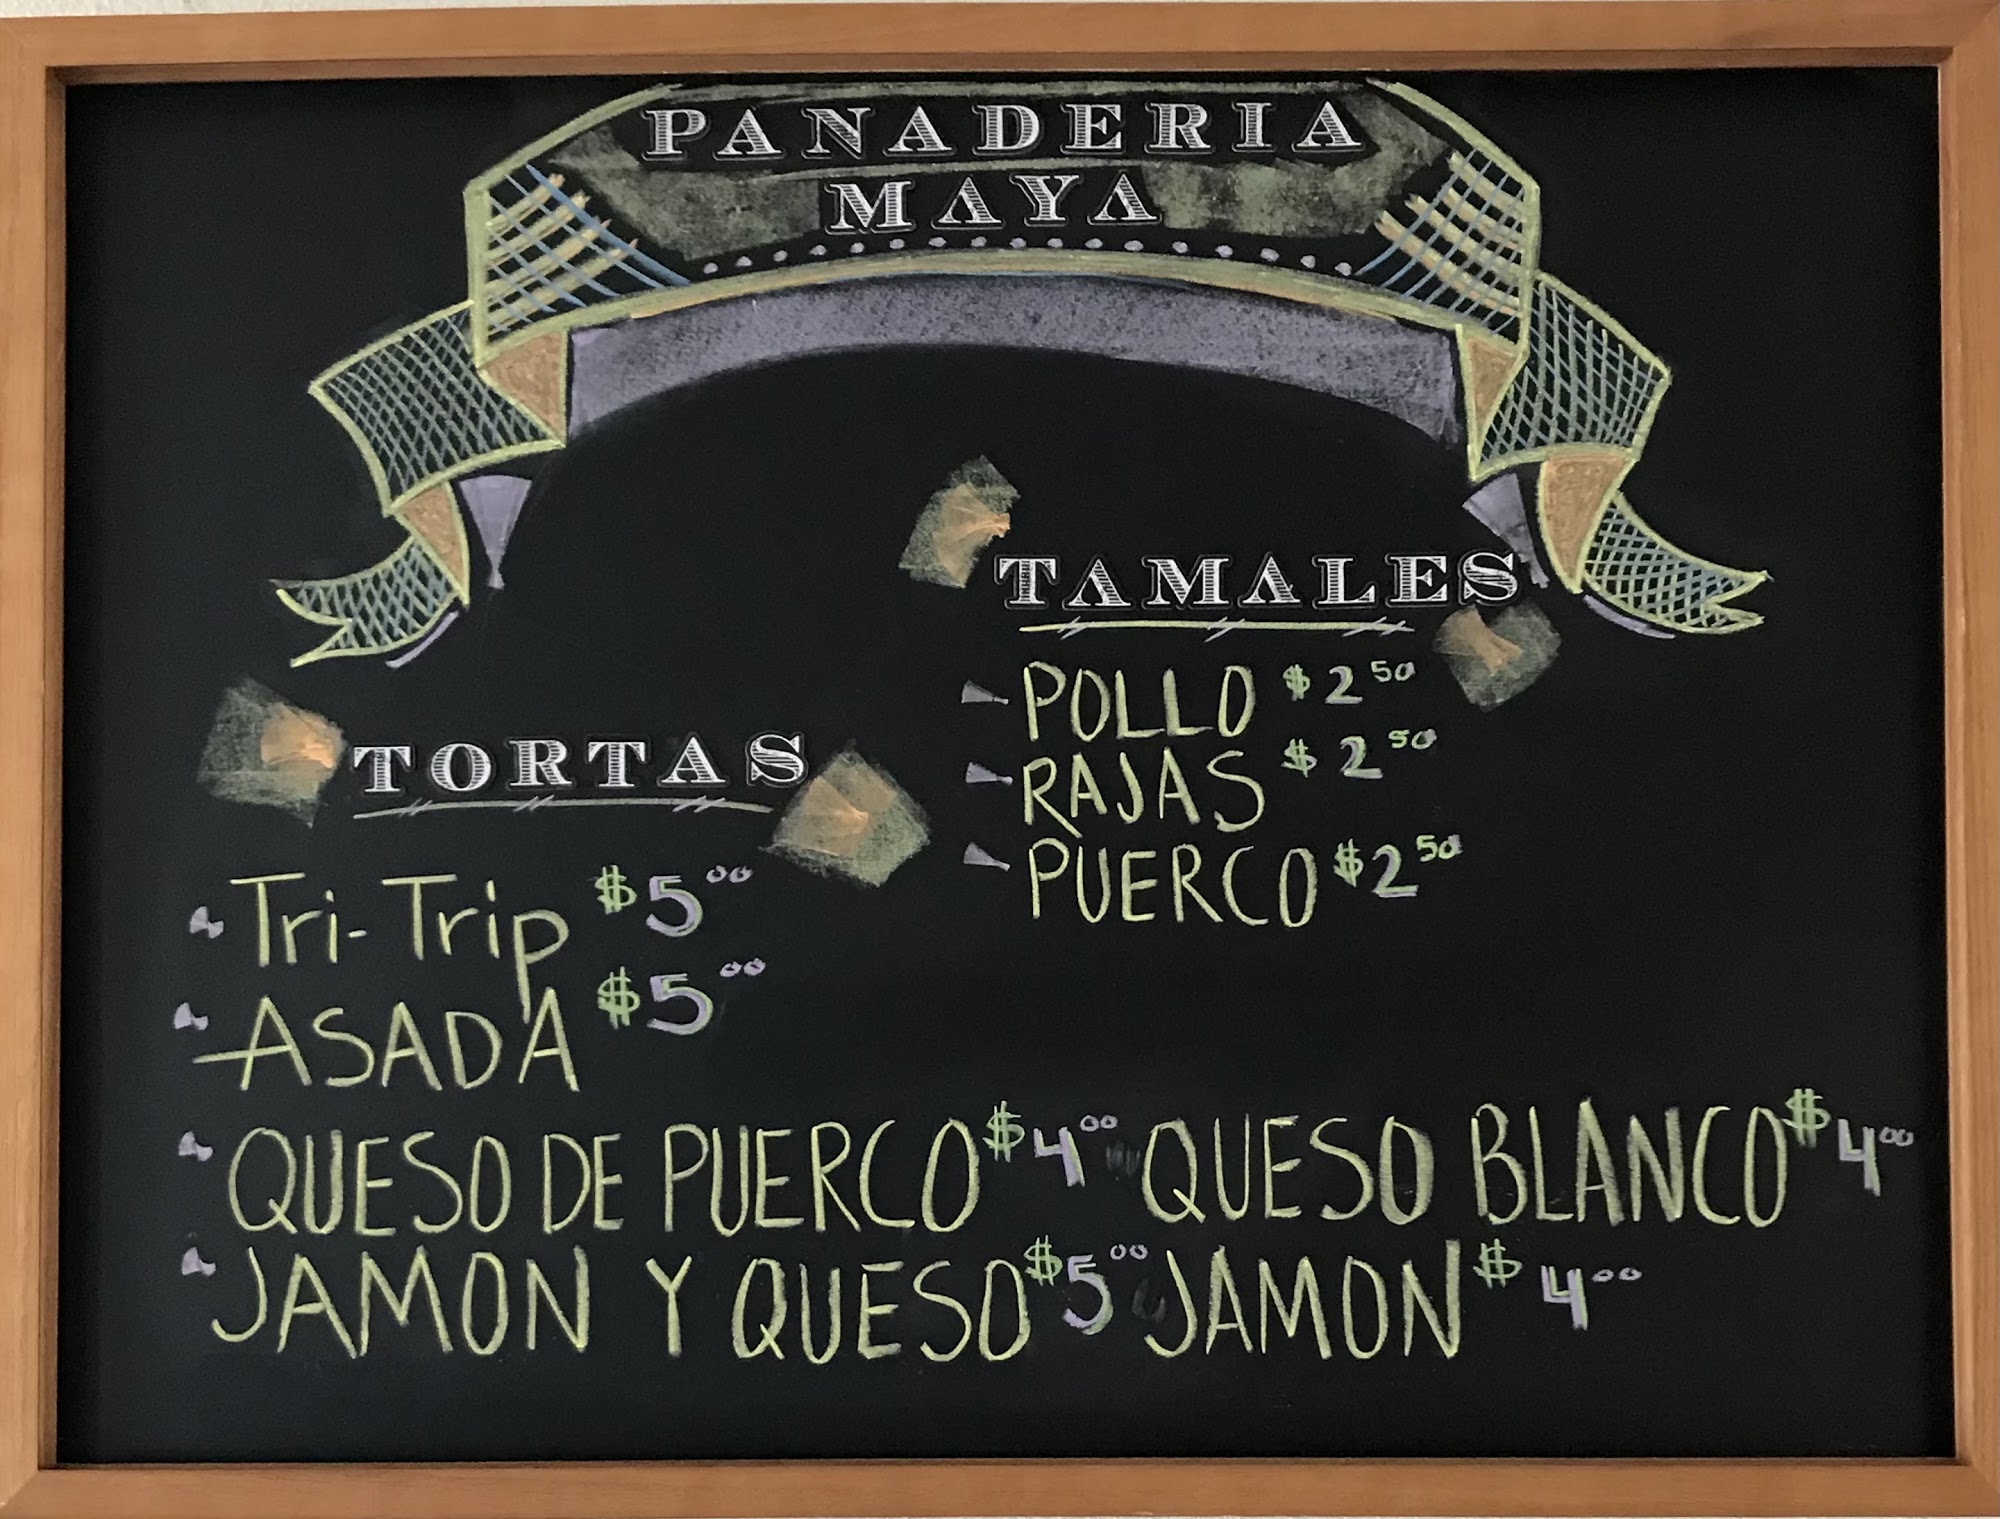 PANADERIA
MAYA
TAMALES
POLLO $2.50
RAJAS $2.50
PUERCO $2.50
TORTAS
Tri-Trip $5.00
ASADA $5.00
QUESO DE PUERCO $4.00 QUESO BLANCO $4.00
JAMON Y QUESO $5.00 JAMON $4.00